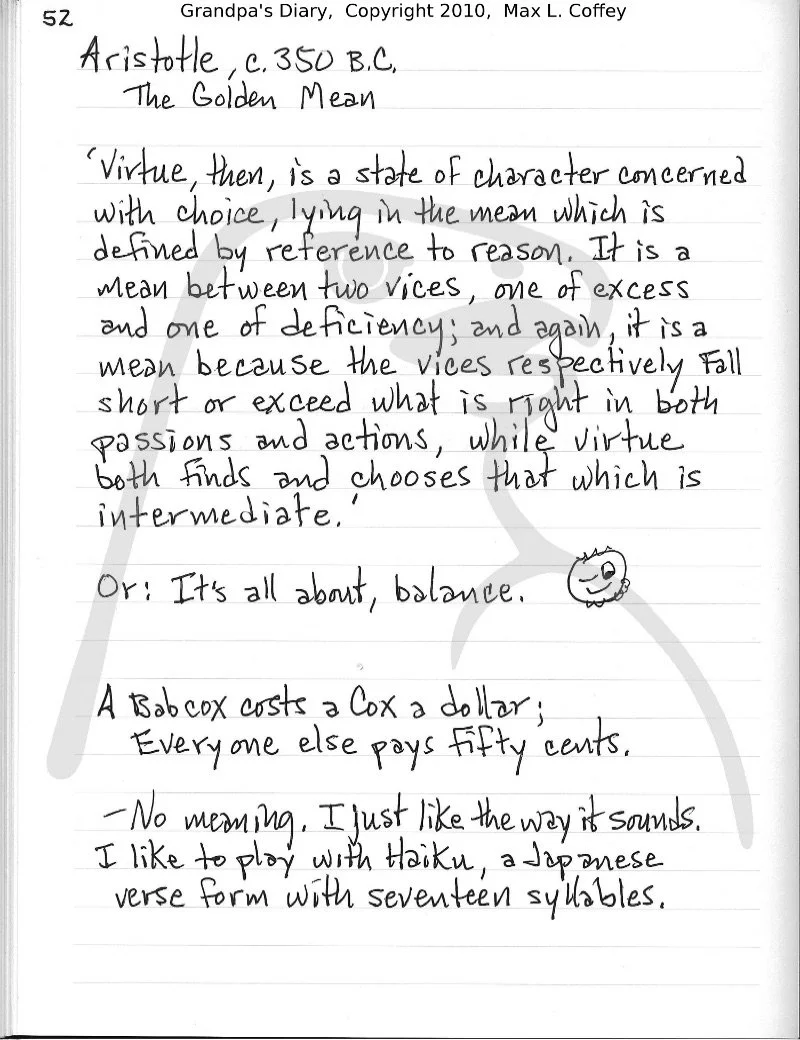 52
Grandpa's Diary, Copyright 2010, Max L. Coffey
Aristotle, c. 350 B.C.
The Golden Mean
'Virtue, then, is a state of character concerned
with choice, lying in the mean which is
defined by reference to reason. It is a
mean between two vices, one of excess
and one of deficiency; and again, it is a
mean because the vices respectively fall
short or exceed what is right in both
passions and actions, while virtue
both finds and chooses that which is
intermediate.'
Or: It's all about, balance.
A Babcox costs a Cox a dollar;
Everyone else pays fifty cents.
- No meaning. I just like the way it sounds.
I like to play with Haiku, a Japanese
verse form with seventeen syllables.